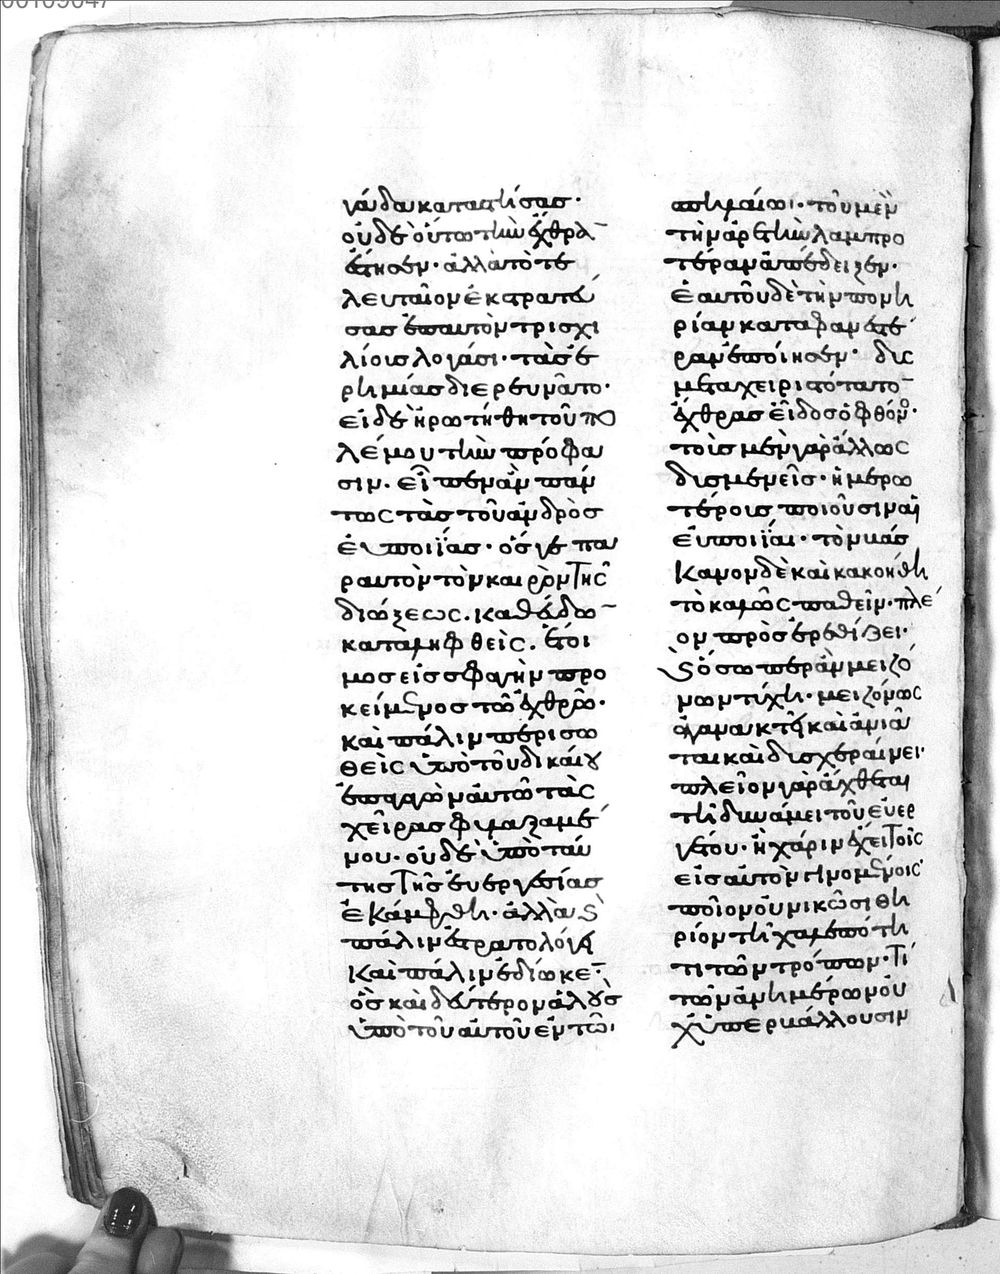 γάνδα καταστήσασ·
οὐδὲ οὕτω τὴν ἔχθρα̅
ἔστησεν· ἀλλὰ τὸ τε
λευταῖον ἐκστρατεύ
σασ ἐπ αυτὸν τρισχι
λίοισ λογάσι· τὰσ ἐ
ρημίασ διερευνᾶτο·
εἰ δὲ ἠρωτήθη τοῦ πο
λέμου τὴν πρόφα
σιν· εἶπεν ἂν πάν
τως τὰσ τοῦ ἀνδρὸσ
εὐποιΐασ· ὅσ γε πα
ρ αυτὸν τὸν καιρὸν τῆς
διώξεως· καθεύδω̅
καταληφθεὶς· ἕτοι
μοσ εἰσ σφαγὴν προ
κείμενοσ τῶ ἐχθρῶ·
καὶ πάλιν περισω
θεὶς ὑπὸ τοῦ δικάου
ἐπ αυτὸν αὐτῶ τὰς
χεῖρασ φυλαξαμέ
νου· οὐδὲ ὑπὸ ταύ
τησ τῆς εὐεργεσίασ
ἐκάμφθη· ἀλλὰ καὶ
πάλιν ἐστρατολόγει
καὶ πάλιν ἐδίωκεν·
ὃσ καὶ δεύτερον ἁλοὺσ
ὑπὸ τοῦ αὐτοῦ ἐν τῶ
σπηλαίωι· τοῦ μὲν
τὴν ἀρετὴν λαμπρο
τέραν ἀπέδειξεν·
ἑαυτοῦ δὲ τὴν πονη
ρίαν καταφανεστέ
ραν ἐποίησεν· δυς
μεταχειριστότατο̅
ἔχθρασ εἶδοσ ὁ φθόνος·
τοὺσ μὲν γὰρ ἄλλως
δυσμενεῖσ· ἡμερω
τέρουσ ποιοῦσιν αἱ
εὐποιΐαι· τὸν βάσ
κανον δὲ καὶ κακοήθη
τὸ καλῶς παθεῖν· πλέ
ον προσερεθίζει·
καὶ ὅσω περ ἂν μειζό
νων τύχη· μειζόνως
ἀγανακτεῖ καὶ ἀνιᾶ
ται καὶ δυσχεραίνει·
πλεῖον γὰρ ἄχθεται
τῆ δυνάμει τοῦ εὐερ
γέτου· ἢ χάριν ἔχει τοῖς
εἰσ αυτὸν γινομένοις·
ποῖον οὐ νικῶσι θη
ρίον τῆ χαλεπότη
τι τῶν τρόπων· τί
τῶν ἀνημέρων οὐ
χ ὑπερβάλλουσιν